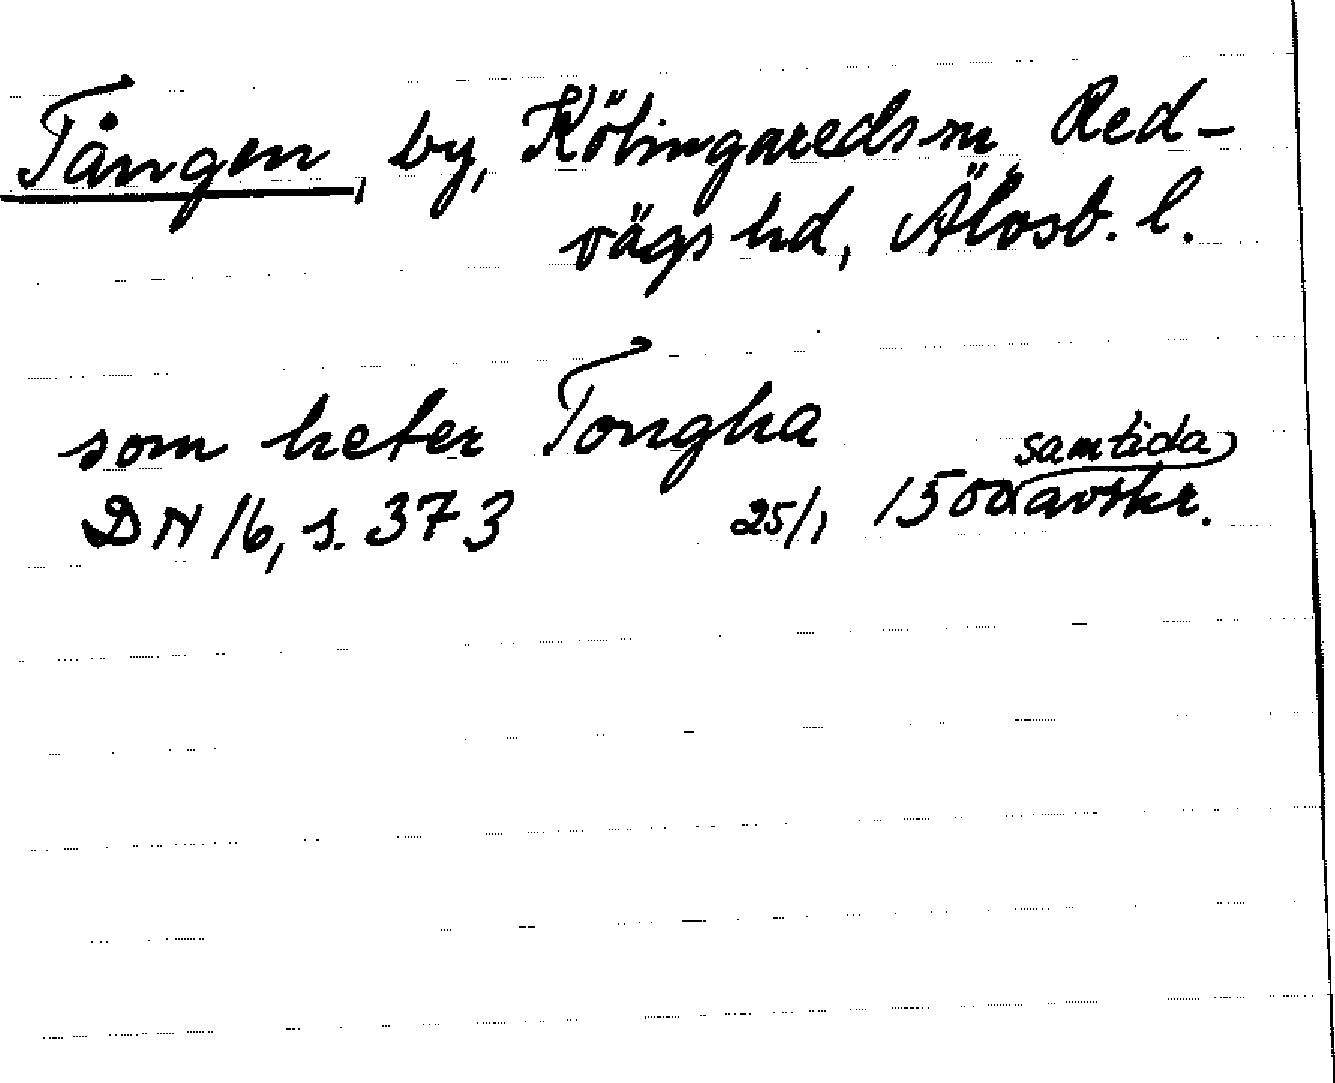 Tången, by, Kölingareds sn, Red-
vägs hd, Älvsb. l.
som heter Tongha
samtida
DN 16, s. 373 25/1 1500 avskr.